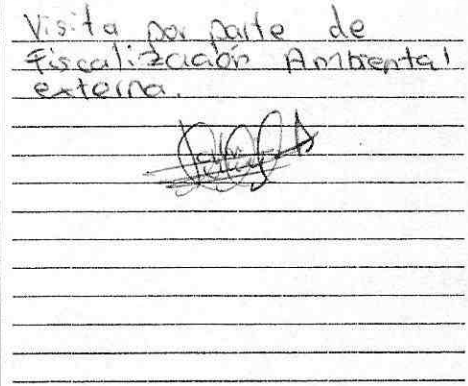 Visita por parte de
Fiscalización Ambiental
externa.